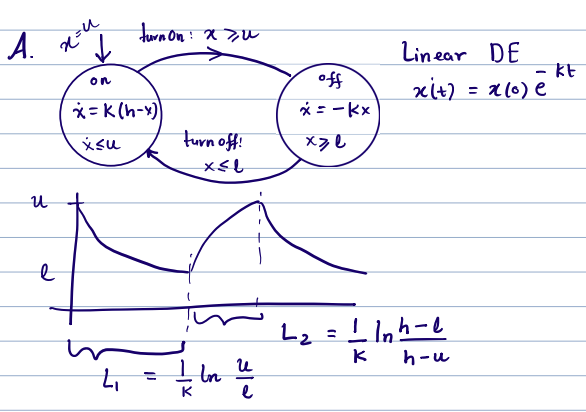 A.
x=u
turn on: x ≥ u
on
ẋ = K(h-x)
ẋ ≤ u
off
ẋ = -Kx
x ≥ l
turn off!
x ≤ l
Linear DE
ẋ(t) = x(0) e^-kt
u
l
L₂ = 1/K ln h-l/h-u
L₁ = 1/K ln u/l